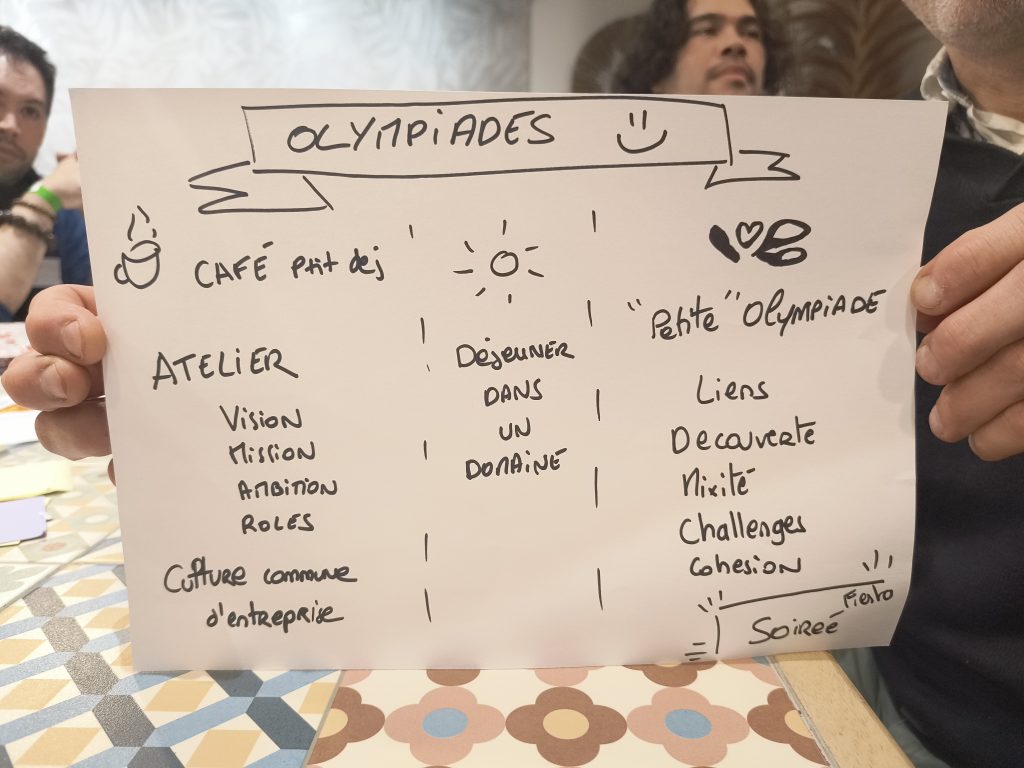 OLYMPiADES
CAFÉ Ptit dej
ATELiER
Vision
Mission
AMBITION
ROLES
Culture commune
d'entreprise
DéjeuNER
DANS
UN
DOMAINE
"Petite" OlyMPiADE
Liens
Decouverte
Mixité
Challenges
Cohesion
Fiesta
Soireé